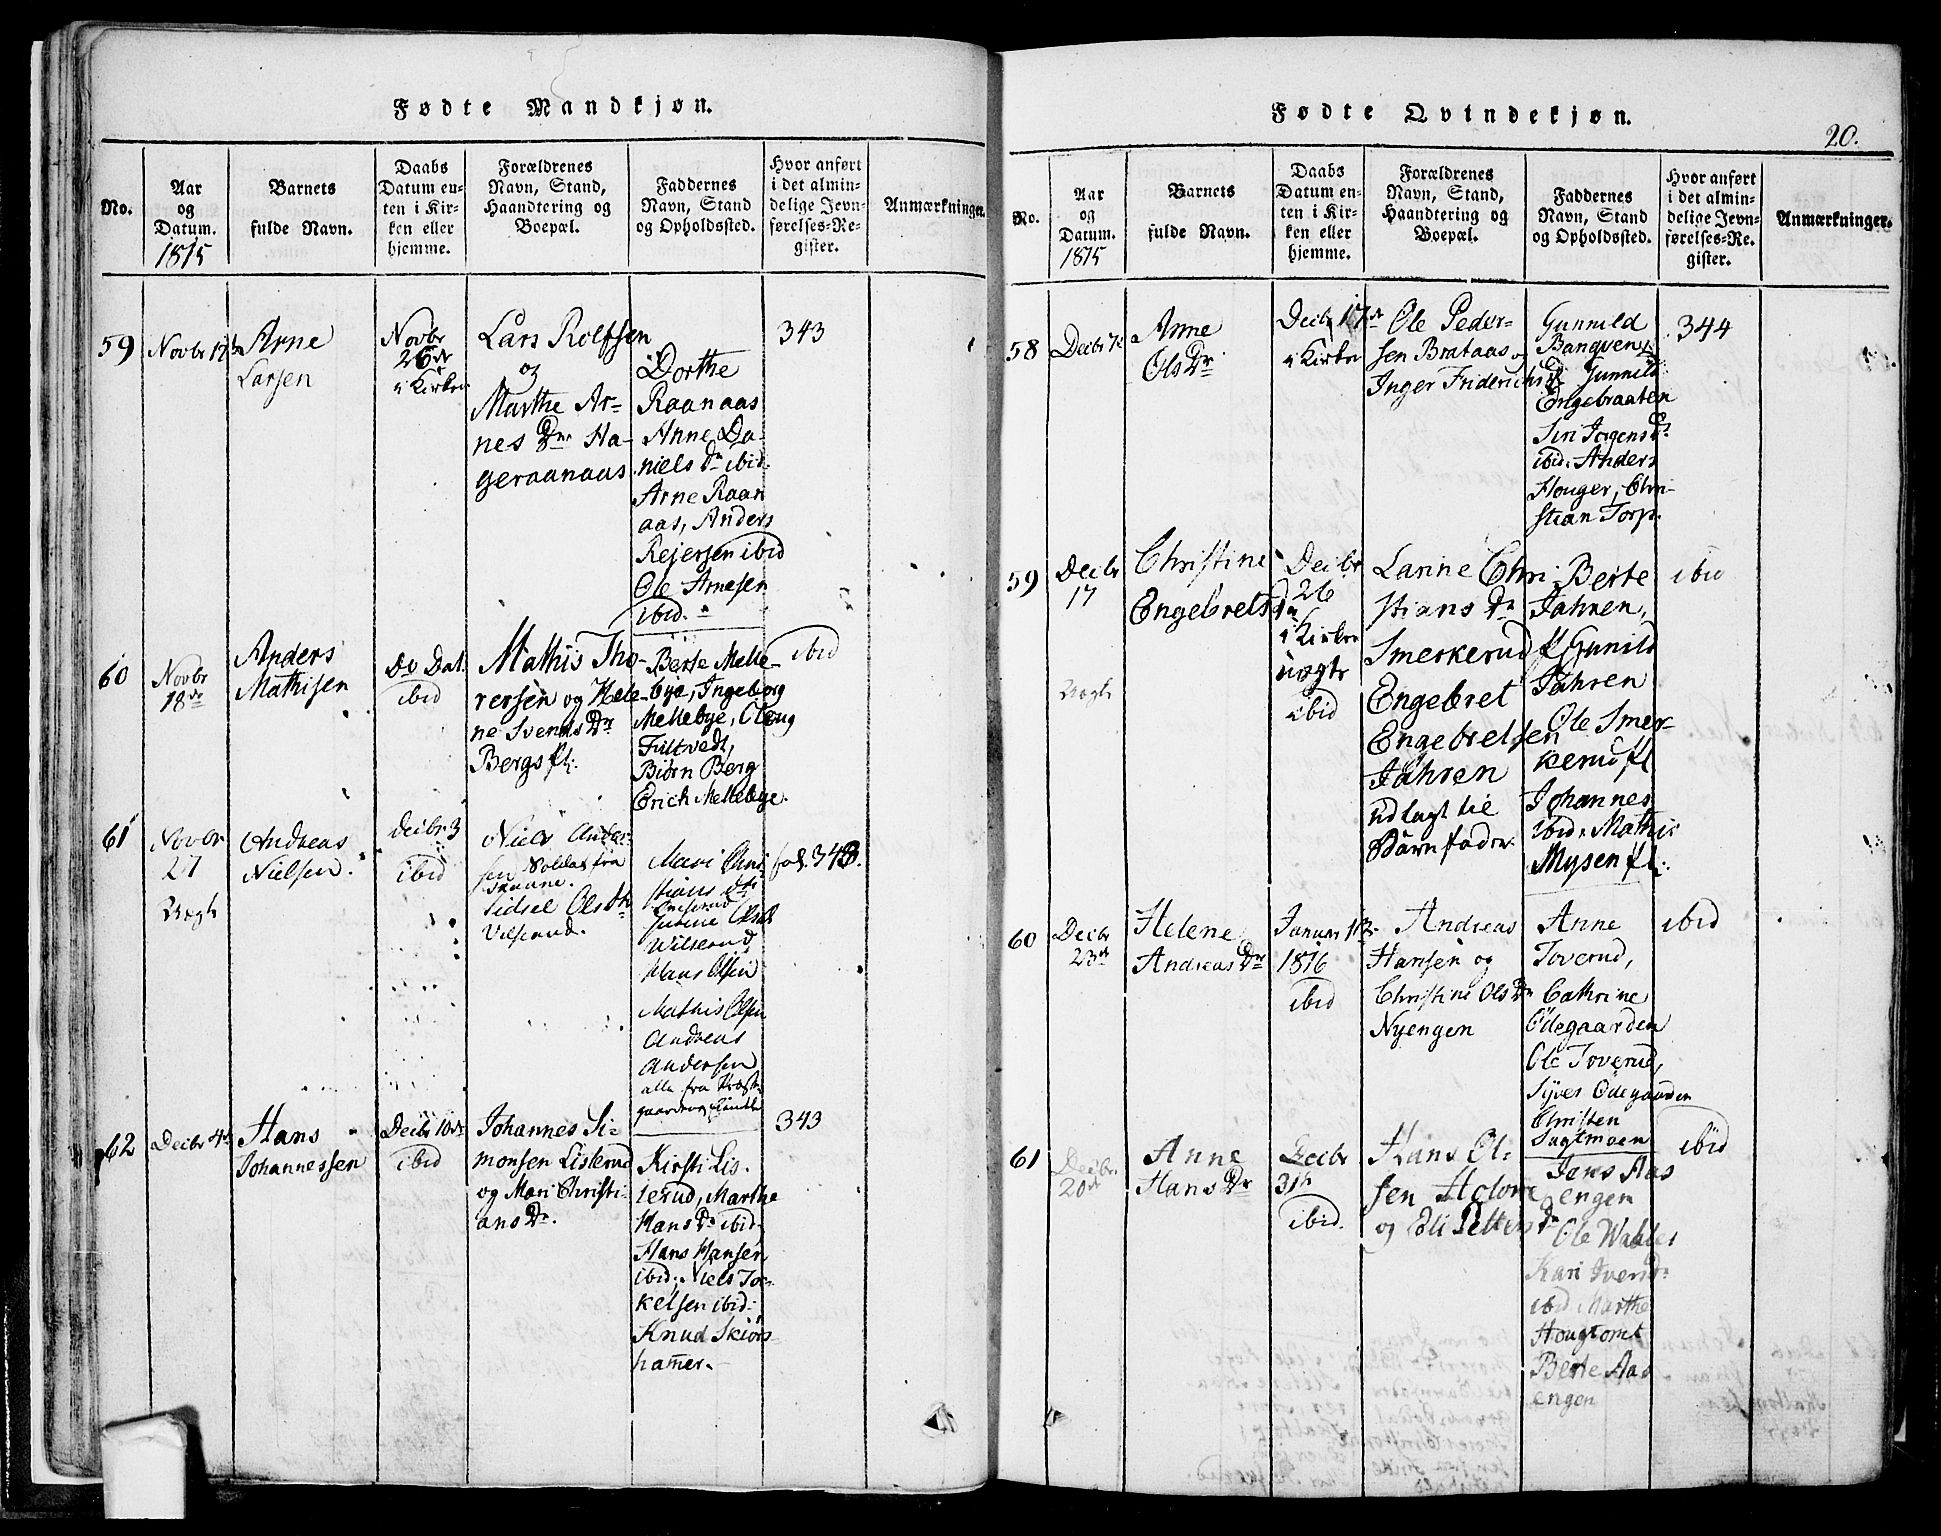 Fødte Mandkjøn.
No.
Aar
og
Datum.
1815
Barnets
fulde Navn.
Daabs
Datum en-
ten i Kir-
ken eller
hjemme.
Forældrenes
Navn, Stand,
Haandtering og
Boepæl.
Faddernes
Navn, Stand
og Opholdssted.
Hvor anført
i det almin-
delige Jevn-
førelses-Re-
gister.
Anmærkninger.
59
Novbr
Arne
Larsen
Novbr
26de
i Kirken
Lars Rolfsen
og
Marthe Ar-
nes Dr. Ha-
geraanaas
Dorthe
Raanaas
Anne Da-
niels Dr ibid.
Arne Raan
aas, Anders
Rejersen ibid
Ole Arnesen
ibid.
343
60
Novbr
18de
Anders
Mathisen
Do Dat.
ibid
Mathis Tho-
rersen og Hele-
ne Svends Dr
Bergs fl.
Berte Melle-
bye, Ingeborg
Mellebye, Oloug
Fultvedt,
Biørn Berg
Erich Mellebye.
ibid
61
Novbr
27
Uægte
Andreas
Nielsen.
Decbr 3
ibid
Niels Ander-
sen Soldat fra
Sidsel Ols Dr
Vilserud.
Mari Chri
stians Dr
Wilserud
Hans Olsen
Mathis Olsen
Andreas
Andersen
alle fra
fol. 343.
62
Decbr 4de
Hans
Johannessen
Decbr 10de
ibid
Johannes Si-
monsen Lislerud
og Mari Christi-
ans Dr.
Kirsti Lis-
lerud, Marthe
Hans Dr ibid,
Hans Hansen
ibid, Niels Tor-
kelsen ibid.
Knud Skiørs-
hamer.
343
Fødte Qvindekjøn.
20.
No.
Aar
og
Datum.
1815
Barnets
fulde Navn.
Daabs
Datum en-
ten i Kir-
ken eller
hjemme.
Forældrenes
Navn, Stand,
Haandtering og
Boepæl.
Faddernes
Navn, Stand
og Opholdssted.
Hvor anført
i det almin-
delige Jevn-
førelses-Re-
gister.
Anmærkninger.
58
Decbr
Anne
Ols Dr
Decbr 17de
i Kirken
Ole Peder-
sen Brataas og
Inger Friderichs Dr
Gunnild
Bangven,
Gunnild
Engebraaten
Siri Jørgens Dr
ibid. Anders
Houger, Chri-
stian Torp.
344
59
Decbr
17
Uægte
Christine
Engebrets Dr
Decbr
26
i Kirken
uægte
ibid
Lanne Chri-
stians Dr
Smerkerud fl
Engebret
Engebretsen
Jahren
udlagt til
Barnfader.
Berte
Jahren,
Gunild
Jahren
Ole Smer-
kerud, fl
Johannes
ibid. Mathis
Mysen fl.
ibid
60
Decbr
23de
Helene
Andreas Dr
Januar 1
1816
ibid
Andreas
Hansen og
Christine Ols Dr
Nyengen
Anne
Toverud,
Cathrine
Ødegaarden
Ole Toverud,
Syver Ødegaarden
Christen
Sagtmoen
ibid
61
Decbr
20de
Anne
Hans Dr
Decbr
31te
ibid.
Hans Ol-
sen Holone
og Eli Petters Dr
Jens Aas
engen
Ole
Kari
ibid Marthe
Hougtomt
Berte Aas
engen
ibid